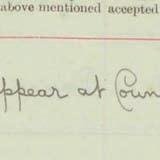 above mentioned accepted
ppear at Coun